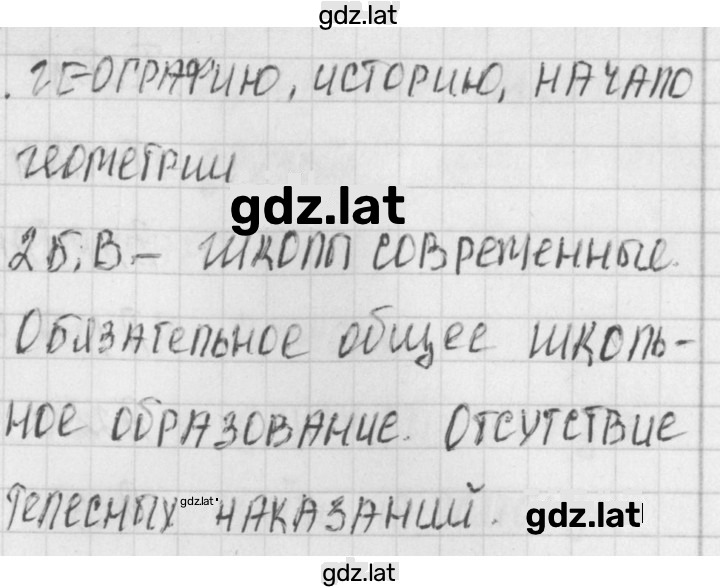 gdz.lat
. географию, историю, начало
геометрии
gdz.lat
2Б, В – школы современные.
Обязательное общее школь-
ное образование. Отсутствие
телесных наказаний.
gdz.lat
gdz.lat
gdz.lat